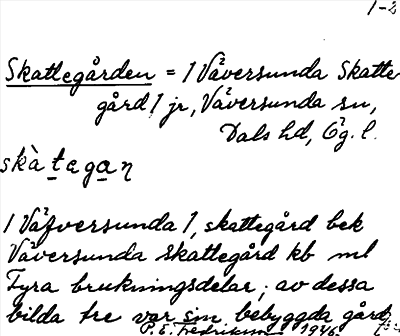 1-2
Skattegården = / Väversunda Skatte
gård / jr, Väversunda sn,
Dals hd, Ög. l.
skàtegan
/ Väfversunda /, skattegård bek
Väversunda Skattegård kb ml
Fyra brukningsdelar; av dessa
bilda tre var sin bebyggda gård.
P. E. Fredriksson 1946